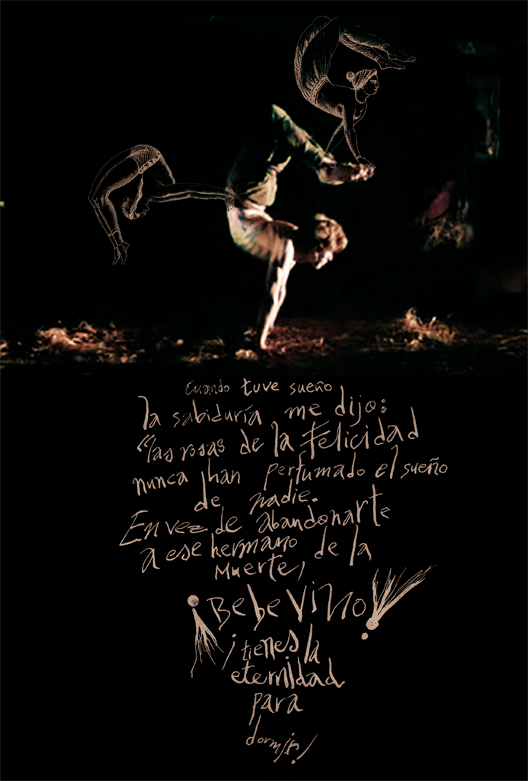 Cuando tuve sueño
la sabiduría me dijo:
"las rosas de la felicidad
nunca han perfumado el sueño
de nadie.
En vez de abandonarte
a ese hermano de la
Muerte,
¡Bebe Vino!
¡tienes la
eternidad
para
dormir!